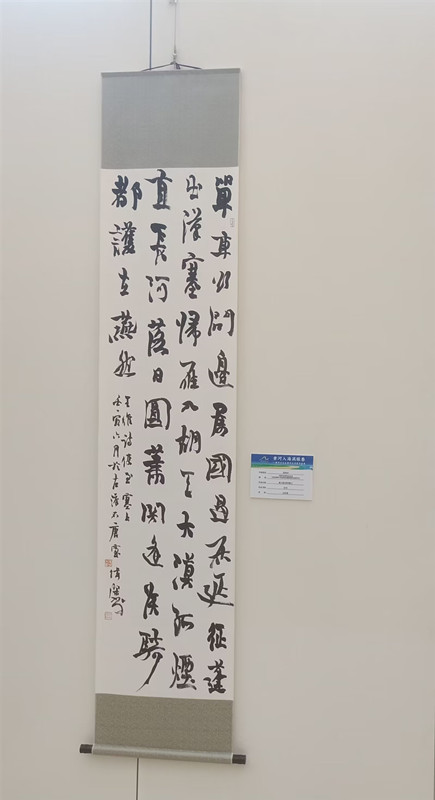 單車欲問邊屬國過居延征蓬
出漢塞歸雁入胡天大漠孤煙
直長河落日圓蕭関逢侯騎
都護在燕然
王維詩使至塞上
壬寅六月於古
黄河入海流